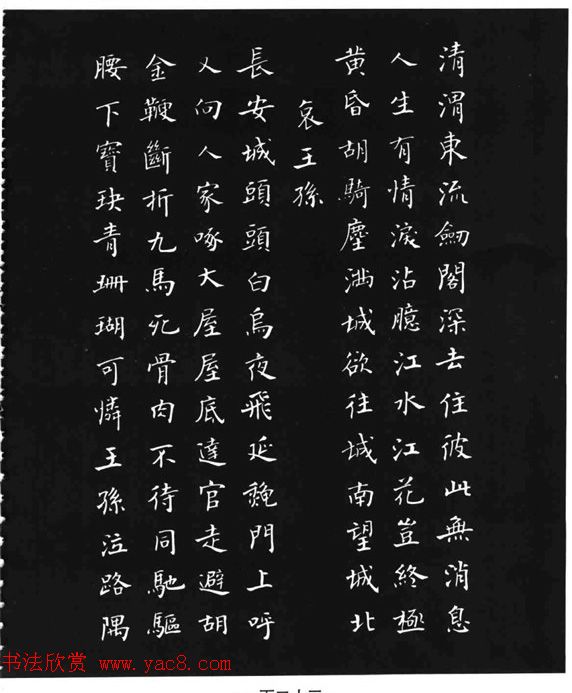 清渭東流劒閣深去住彼此無消息
人生有情淚沾臆江水江花豈終極
黃昏胡騎塵滿城欲往城南望城北
哀王孫
長安城頭頭白烏夜飛延龝門上呼
又向人家啄大屋屋底達官走避胡
金鞭斷折九馬死骨肉不待同馳驅
腰下寶玦青珊瑚可憐王孫泣路隅
书法欣赏 www.yac8.com